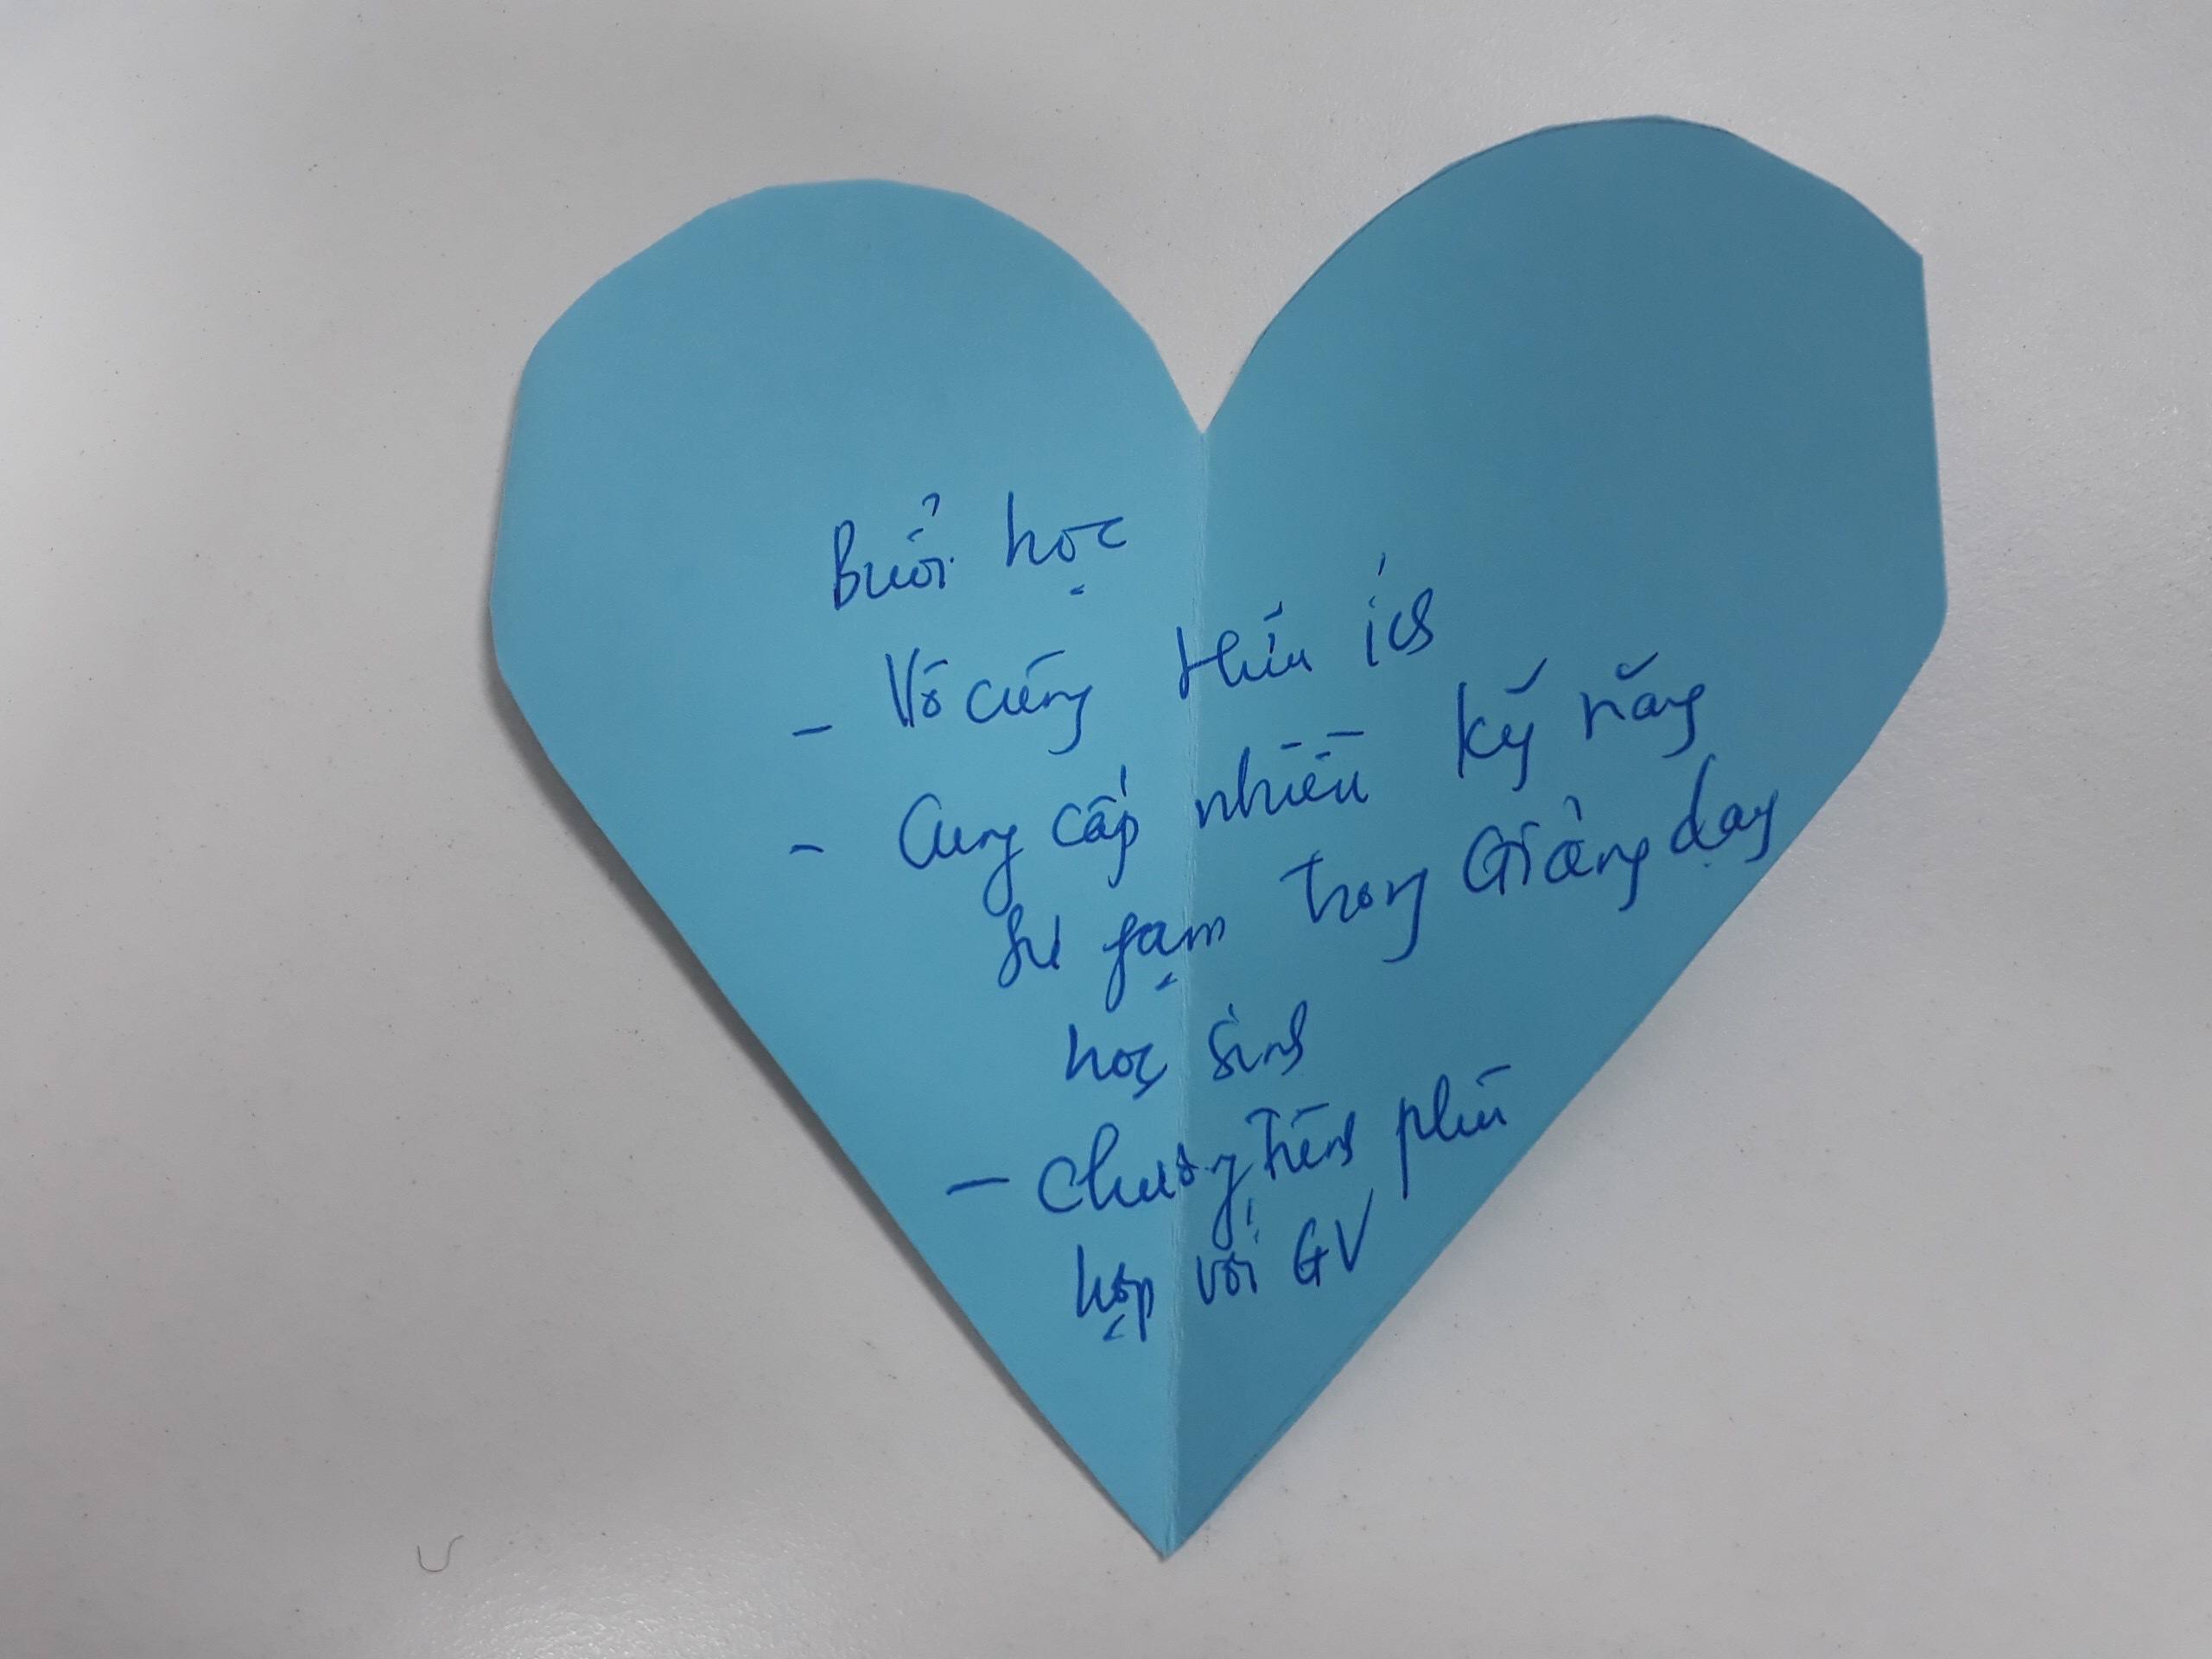 Buổi học
- Vô cùng hữu ích
- Cung cấp nhiều kỹ năng
sư phạm trong Giảng dạy
học sinh
- Chương trình phù
hợp với GV